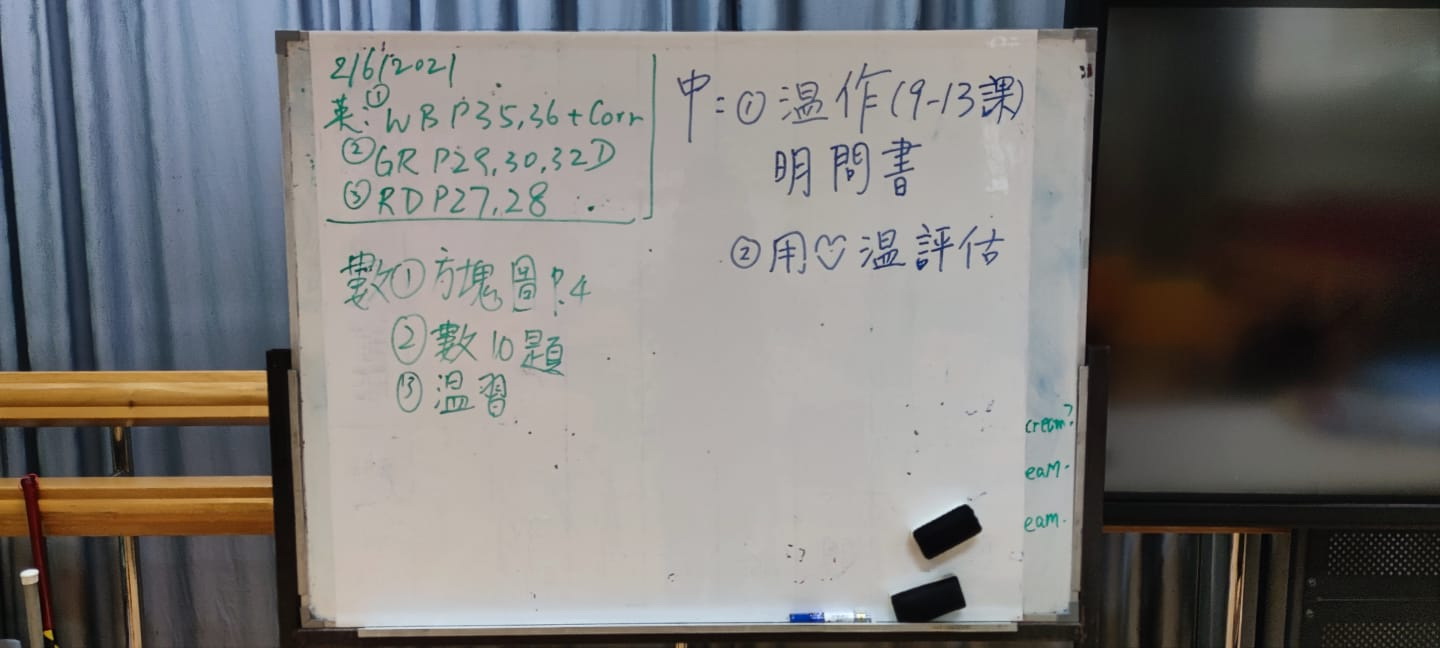 2/6/2021
英:①WB P35,36+Corr
②GR P29,30,32D
③RD P27,28
數①方塊圖 P.4
②數10題
③温習
中:①温作(9-13課)
明問書
②用♡温評估
cream?
eam.
eam.